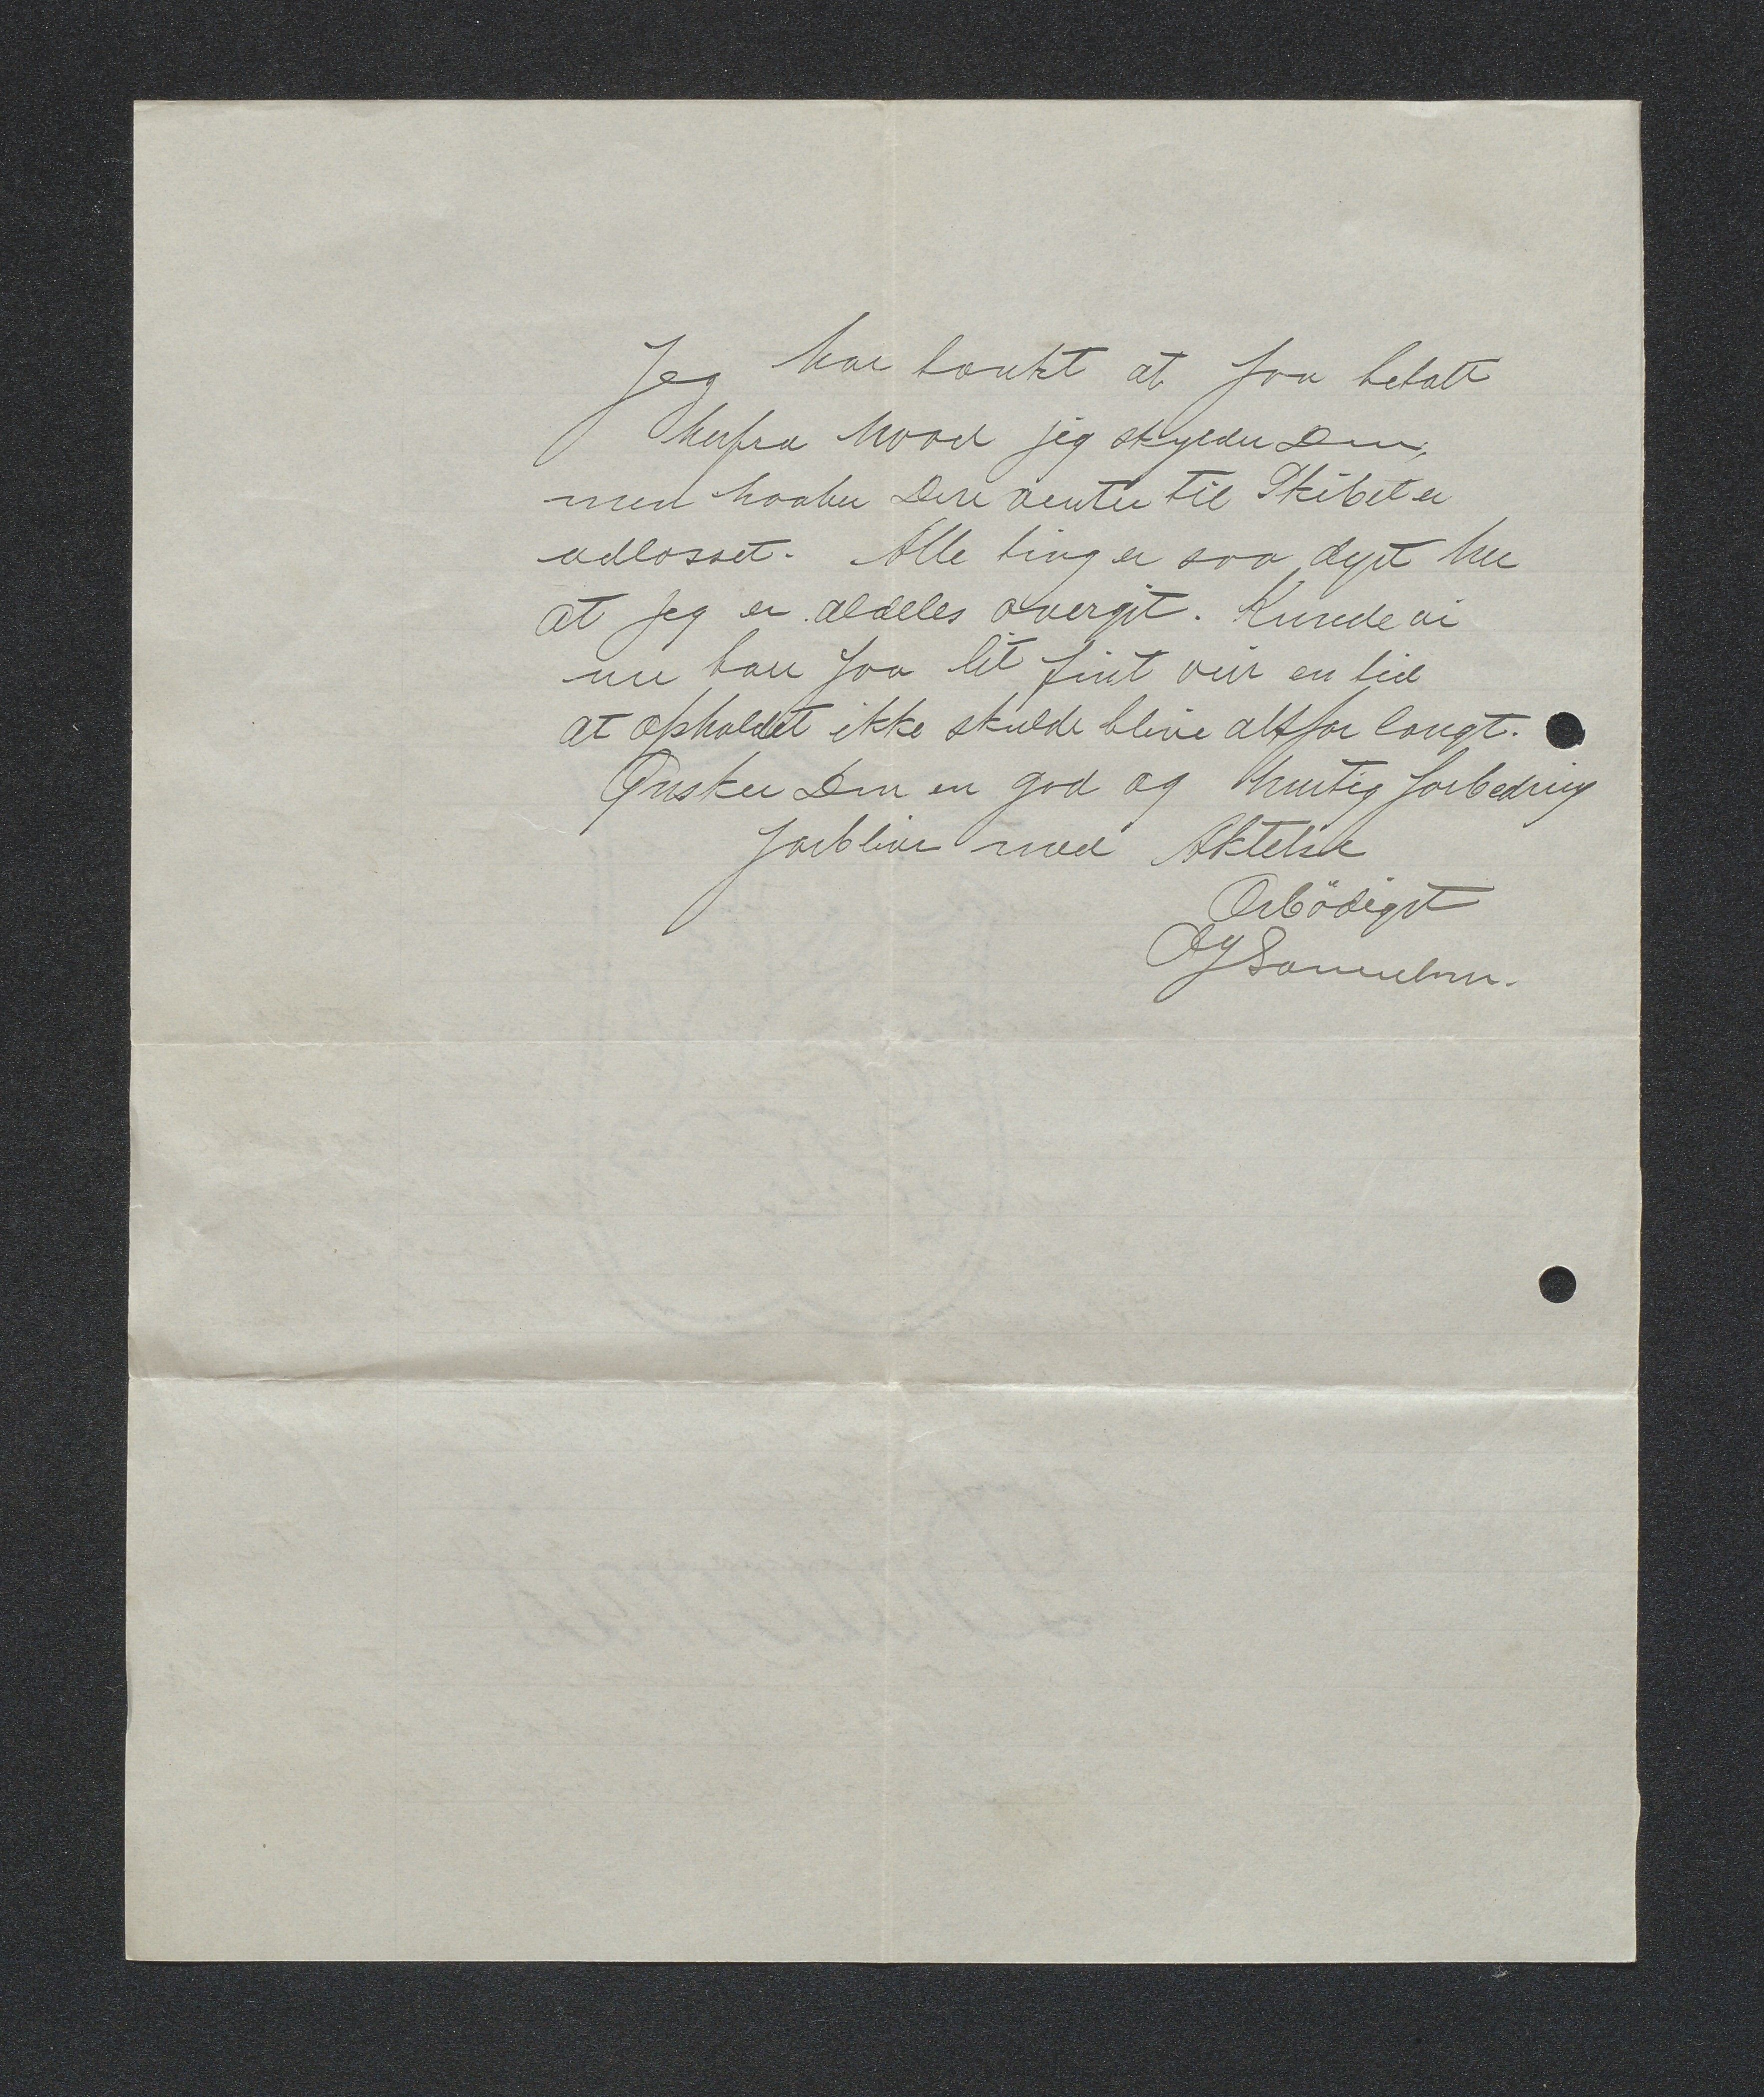 Jeg har tænkt at faa betalt
herfra hvad jeg skylder Dem,
men haaber Dere venter til Skibet er
udlosset. Alle ting er saa dyrt her
at jeg er aldeles overgit. Kunde vi
nu bare faa lit fint veir en tid
at opholdet ikke skulde blive altfor langt.
Ønsker Dem en god og hurtig forbedring
forbliver med Aktelse
Ærbödigst
Samuelsen.